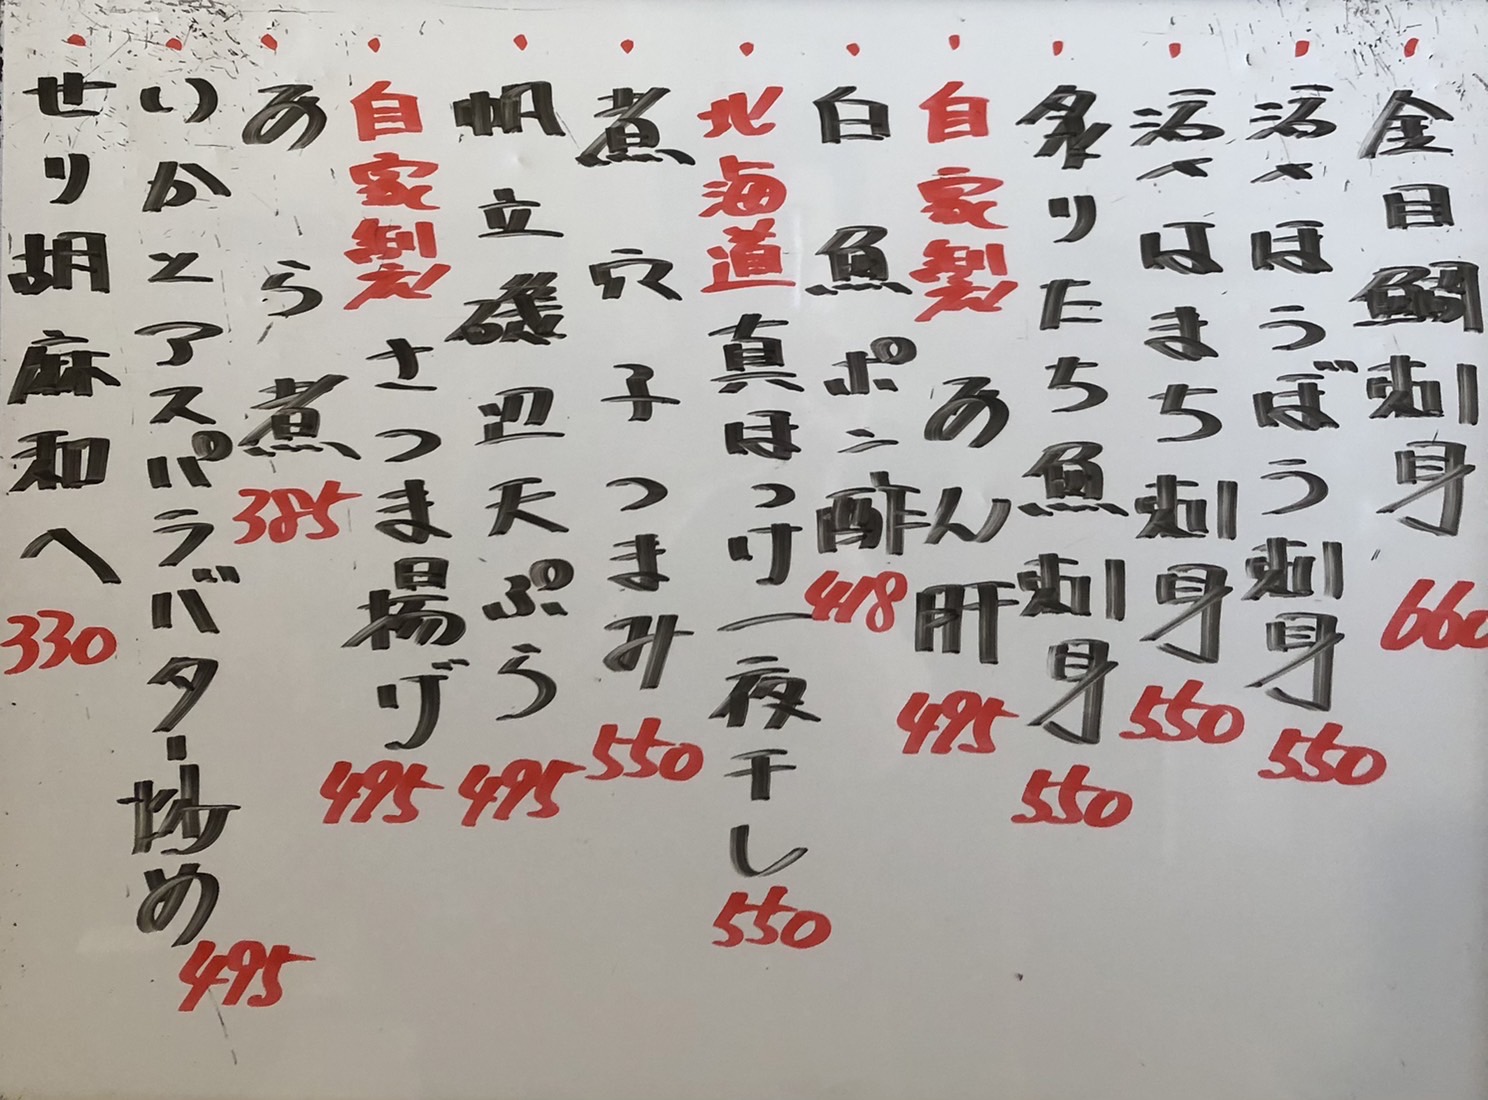 金目鯛刺身 660
活〆ほうぼう刺身 550
活〆はまち刺身 550
炙りたち魚刺身 550
自家製あん肝 495
白魚ポン酢 418
北海道真ほっけ一夜干し 550
煮穴子つまみ 550
帆立磯辺天ぷら 495
自家製さつま揚げ 495
あら煮 385
いかとアスパラバター炒め 495
せり胡麻和へ 330